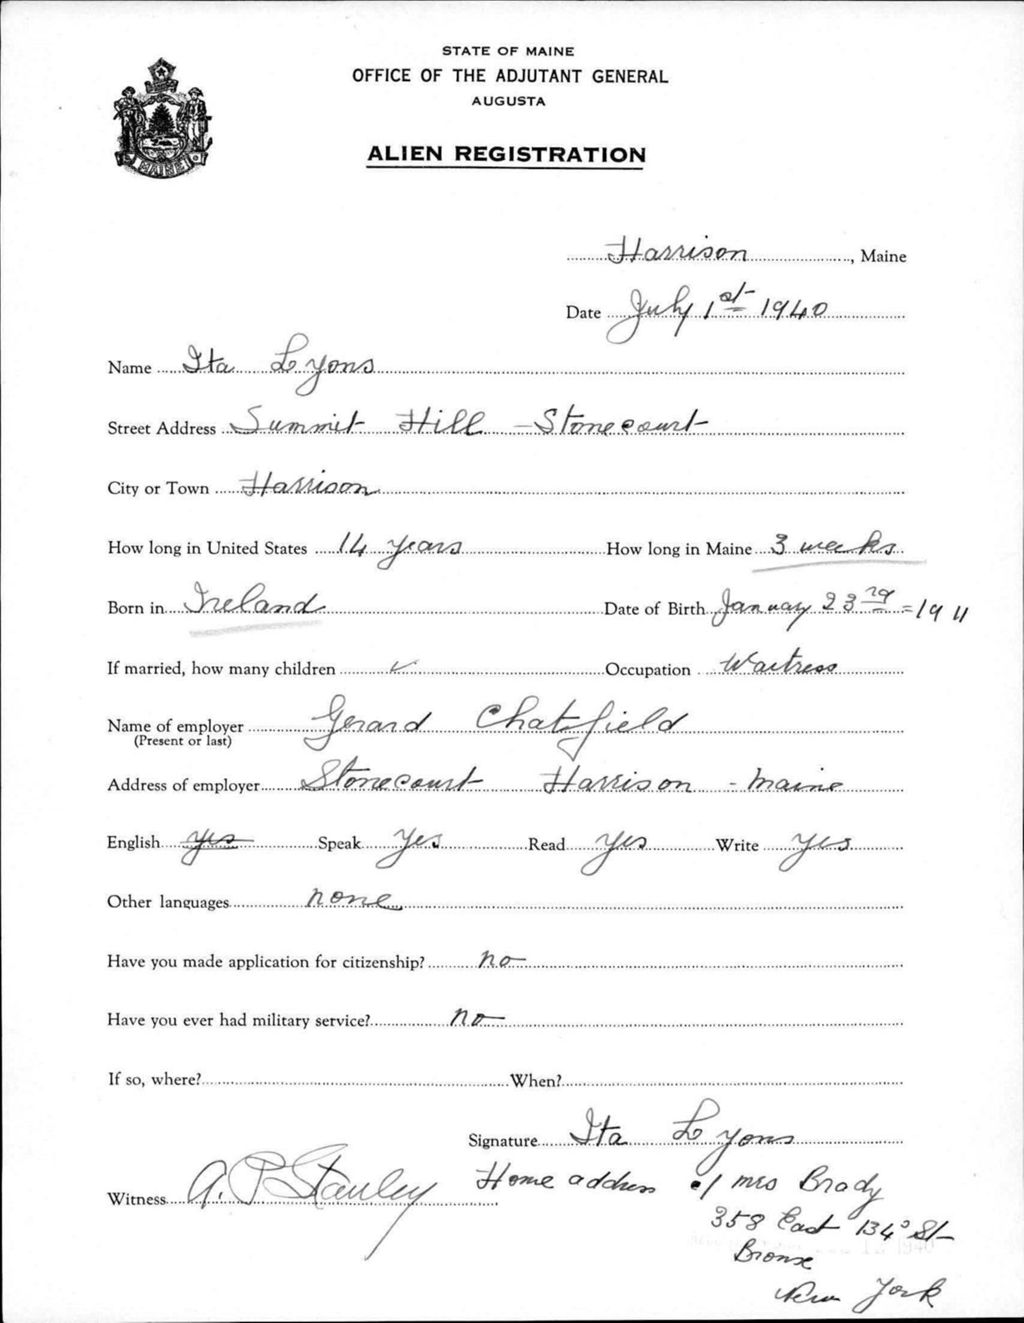 STATE OF MAINE
OFFICE OF THE ADJUTANT GENERAL
AUGUSTA
ALIEN REGISTRATION
MAINE
Harrison, Maine
Date July 1st 1940
Name Ita Lyons
Street Address Summit Hill - Stonecourt
City or Town Harrison
How long in United States 14 years How long in Maine 3 weeks
Born in Ireland Date of Birth January 23rd = 1911
If married, how many children ✓ Occupation Waitress
Name of employer Gerard Chatfield
(Present or last)
Address of employer Stonecourt Harrison - Maine
English yes Speak Yes Read Yes Write Yes
Other languages none
Have you made application for citizenship? no
Have you ever had military service? no
If so, where? When?
Signature Ita Lyons
Witness A. P. Stanley Home address c/ Mrs Brady
358 East 134° St-
Bronx
New York